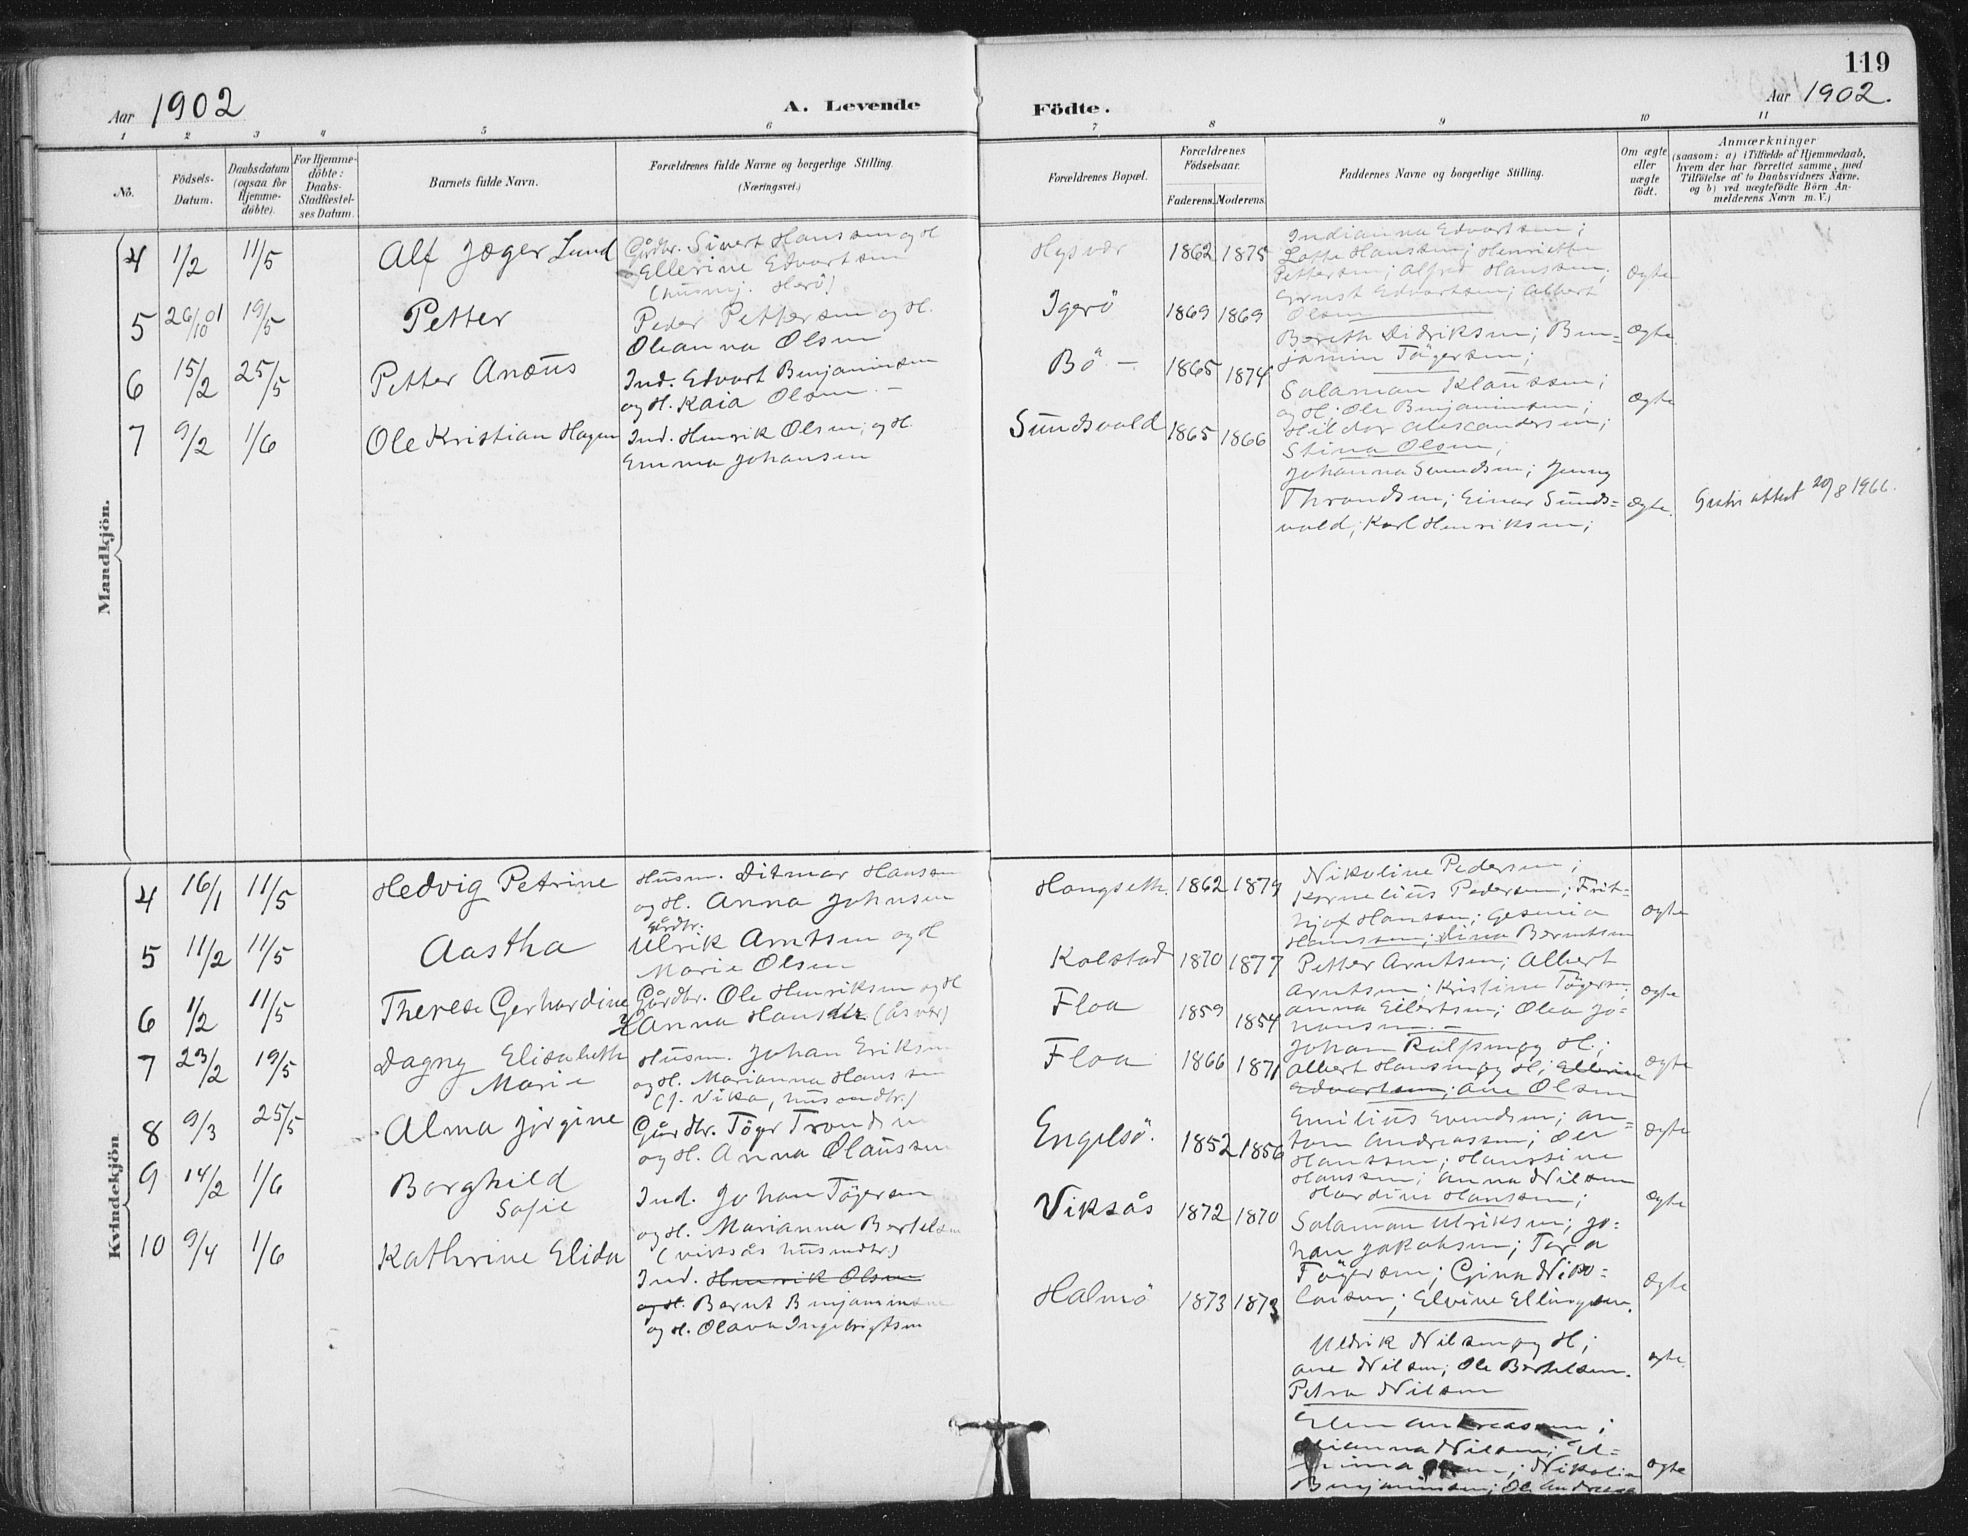 119
Aar 1902
A. Levende
Födte.
Aar 1902.
1 2 3 4 5 6 7 8 9 10 11
No.
Födsels-
Datum.
Daabsdatum
(ogsaa for
Hjemme-
döbte).
For Hjemme-
döbte:
Daabs-
Stadfæstel-
ses Datum.
Barnets fulde Navn.
Forældrenes fulde Navne og borgerlige Stilling.
(Næringsvei.)
Forældrenes Bopæl.
Forældrenes
Födselsaar.
Faderens. Moderens.
Faddernes Navne og borgerlige Stilling.
Om ægte
eller
uægte
födt.
Anmærkninger
(saasom: a) i Tilfælde af Hjemmedaab,
hvem der har forrettet samme, med
Tilföielse af to Daabsvidners Navne,
og b) ved uægtefödte Börn An-
melderens Navn m. V.)
Mandkjön.
4 1/2 11/5 Alf Jæger Lund
Gårdbr. Sivert Hanssen og H.
Ellerine Edvartsen
(husmj. Herö)
Hysvær 1862 1875
Indianna Edvartsen;
Lotta Hanssen; Henriette
Pettersen; Alfred Hanssen;
Ernst Edvartsen; Albert
Olsen
ægte
5 26/10 01 19/5 Petter
Peder Pettersen og H.
Oleanna Olsen
Igerö 1869 1869
Bereth Didriksen; Ben=
jamin Tögersen;
ægte
6 15/2 25/5 Petter Anæus
Ind. Edvart Benjaminsen
og H. Kaia Olsen. –
Bö – 1865 1874
Salamon Klaussen;
og H; Ole Benjaminsen;
Hildor Alexandersen;
Stina Olsen;
ægte
7 9/2 1/6 Ole Kristian Hagen
Ind. Henrik Olsen, og H.
Emma Johansen
Sundsvold 1865 1866
Johanna Svendsen; Jenny
Throndsen; Einar Sunds=
vold; Karl Henriksen;
ægte.
Gratis attest 20/8 1966.
Kvindekjön
4 16/1 11/5 Hedvig Petrine
Husm. Ditmar Hansen
og H. Anna Johnsen
Hongseth. 1862 1879
Nikoline Pedersen;
Kornelius Pedersen; Frit=
hjof Hansen; Gesenia
Hanssen; Lina Berntsen
ægte
5 11/2 11/5 Aastha
Gårdbr.
Ulrik Arntsen og H
Marie Olsen
Kolstad 1870 1877
Petter Arntsen; Albert
Arntsen; Kristine Tögersen
Anna Eilertsen; Olea Jo=
hansen. –
ægte
6 1/2 11/5 Therese Gerhardine
Gårdbr. Ole Henriksen og H
Anna Hansdtr (Åsvær)
Floa 1859 1854
Johan Rolfsen og H.;
Albert Hansen og H; Ellerine
Edvartsen; Ane Olsen
ægte
7 23/2 19/5 Dagny Elisabeth
Marie
Husm. Johan Eriksen
og H. Marianna Hanssen
(f. Vika, husmdbr.)
Floa 1866 1871
Emilius Svendsen; An=
ton Andreassen; Ole
Hanssen; Hanssine
Hanssen; Anna Nilsen
Hardine Hansen;
ægte
8 9/3 25/5 Alma Jörgine
Gårdbr. Töger Trondsen
og H. Anna Olaussen
Engelsö. 1852 1856
Salamon Ulriksen; Jo=
han Jakobsen; Tora
Tögersen; Gina Niko=
laisen; Elvine Ellingsen.
ægte
9 14/2 1/6 Borghild
Sofie
Ind. Johan Tögersen
og H. Marianna Bertelsen
(Viksås husmdbr.)
Viksås 1872 1870
Uldrik Nilsen og H;
Ane Nilsen; Ole Bertelsen.
Petra Nilsen
ægte
10 9/4 1/6 Kathrine Elida
Ind. Henrik Olsen
og H. Bernt Benjaminsen
og H. Olava Ingebrigtsen
Halmö 1873 1873
Elen Andreassen;
Nilsen;
Nikolai
Benjaminsen; Ole Andreas
ægte
ægte